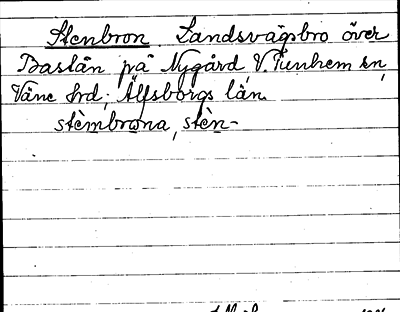 Stenbron. Landsvägsbro över
Baslån på Nygård V. Tunhem sn,
Väne hrd, Älfsborgs län.
stèmbrωna, stèn-